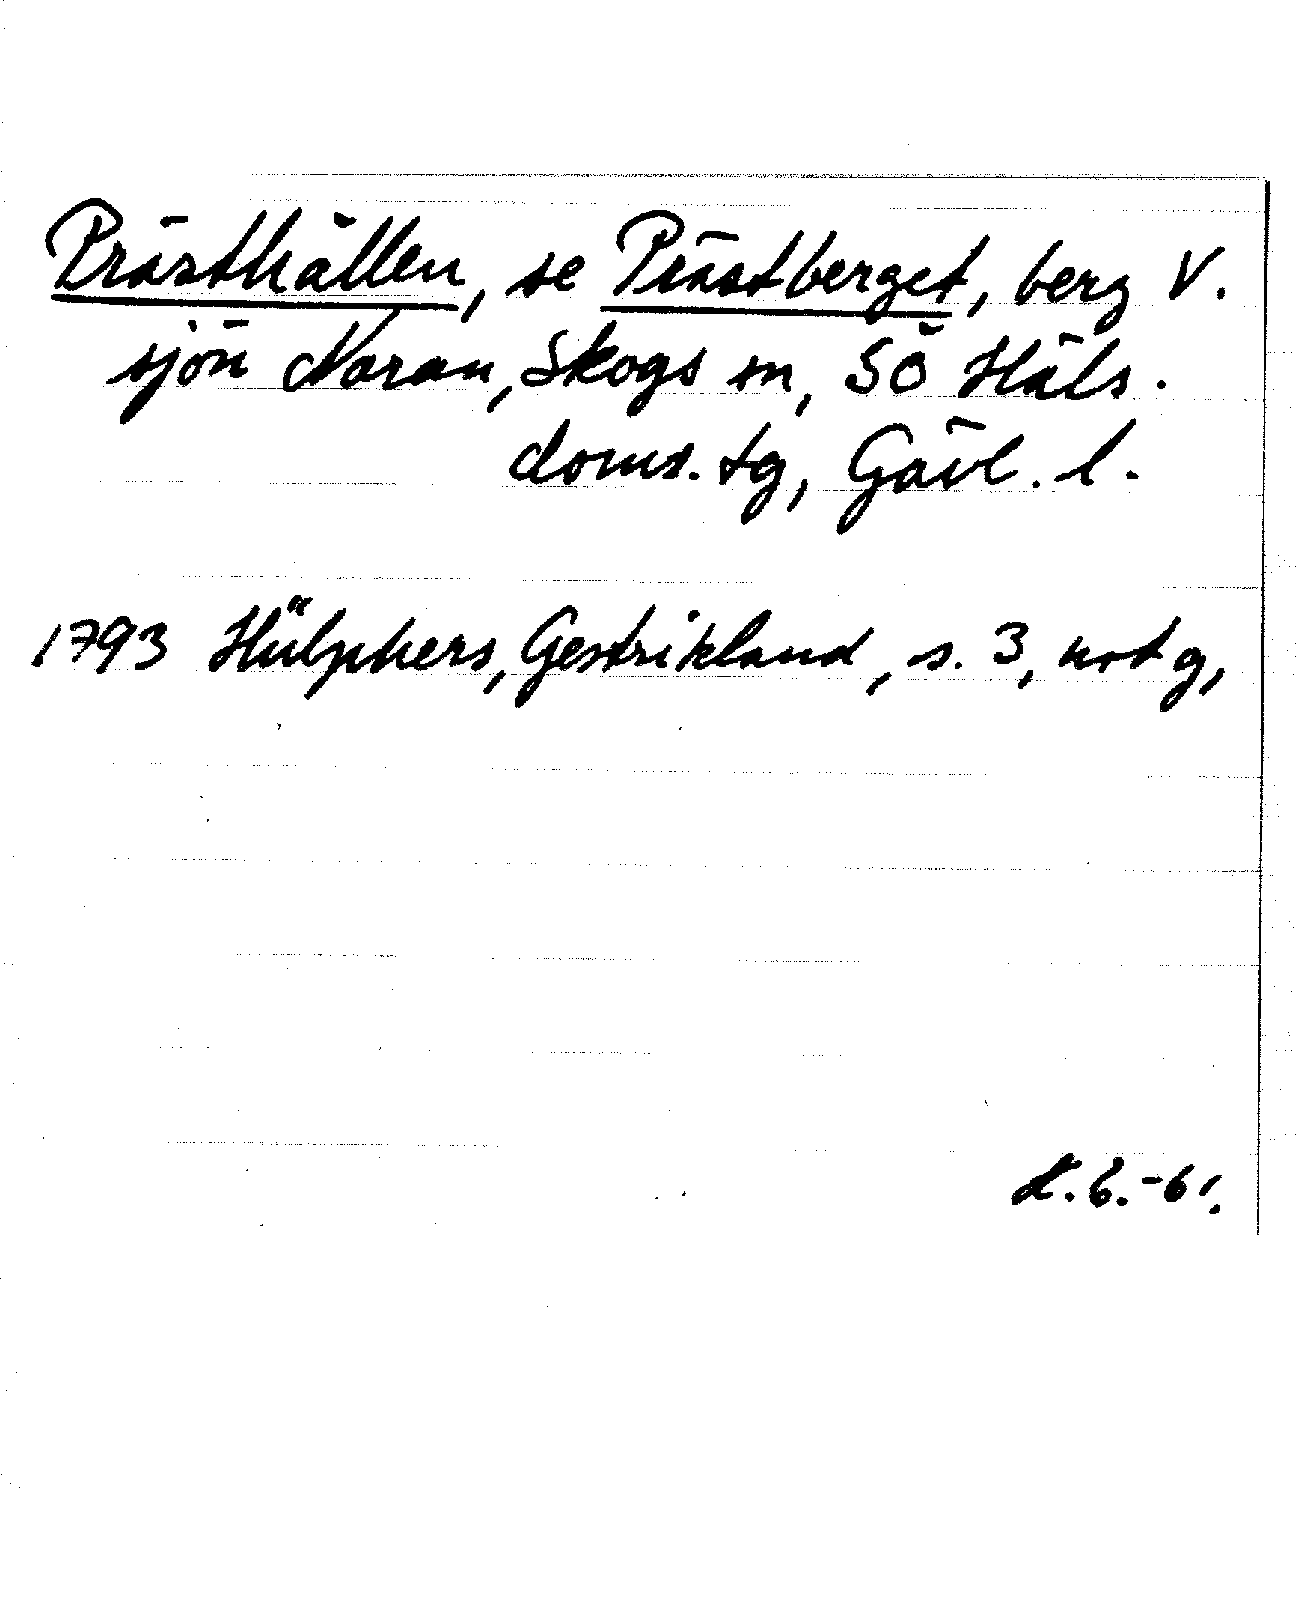 Prästhällen, se Prästberget, berg V.
sjön Noran, Skogs sn, SÖ Häls.
doms. tg, Gävl. l.
1793 Hülphers, Gestrikland, s. 3, not g,
6.-61.